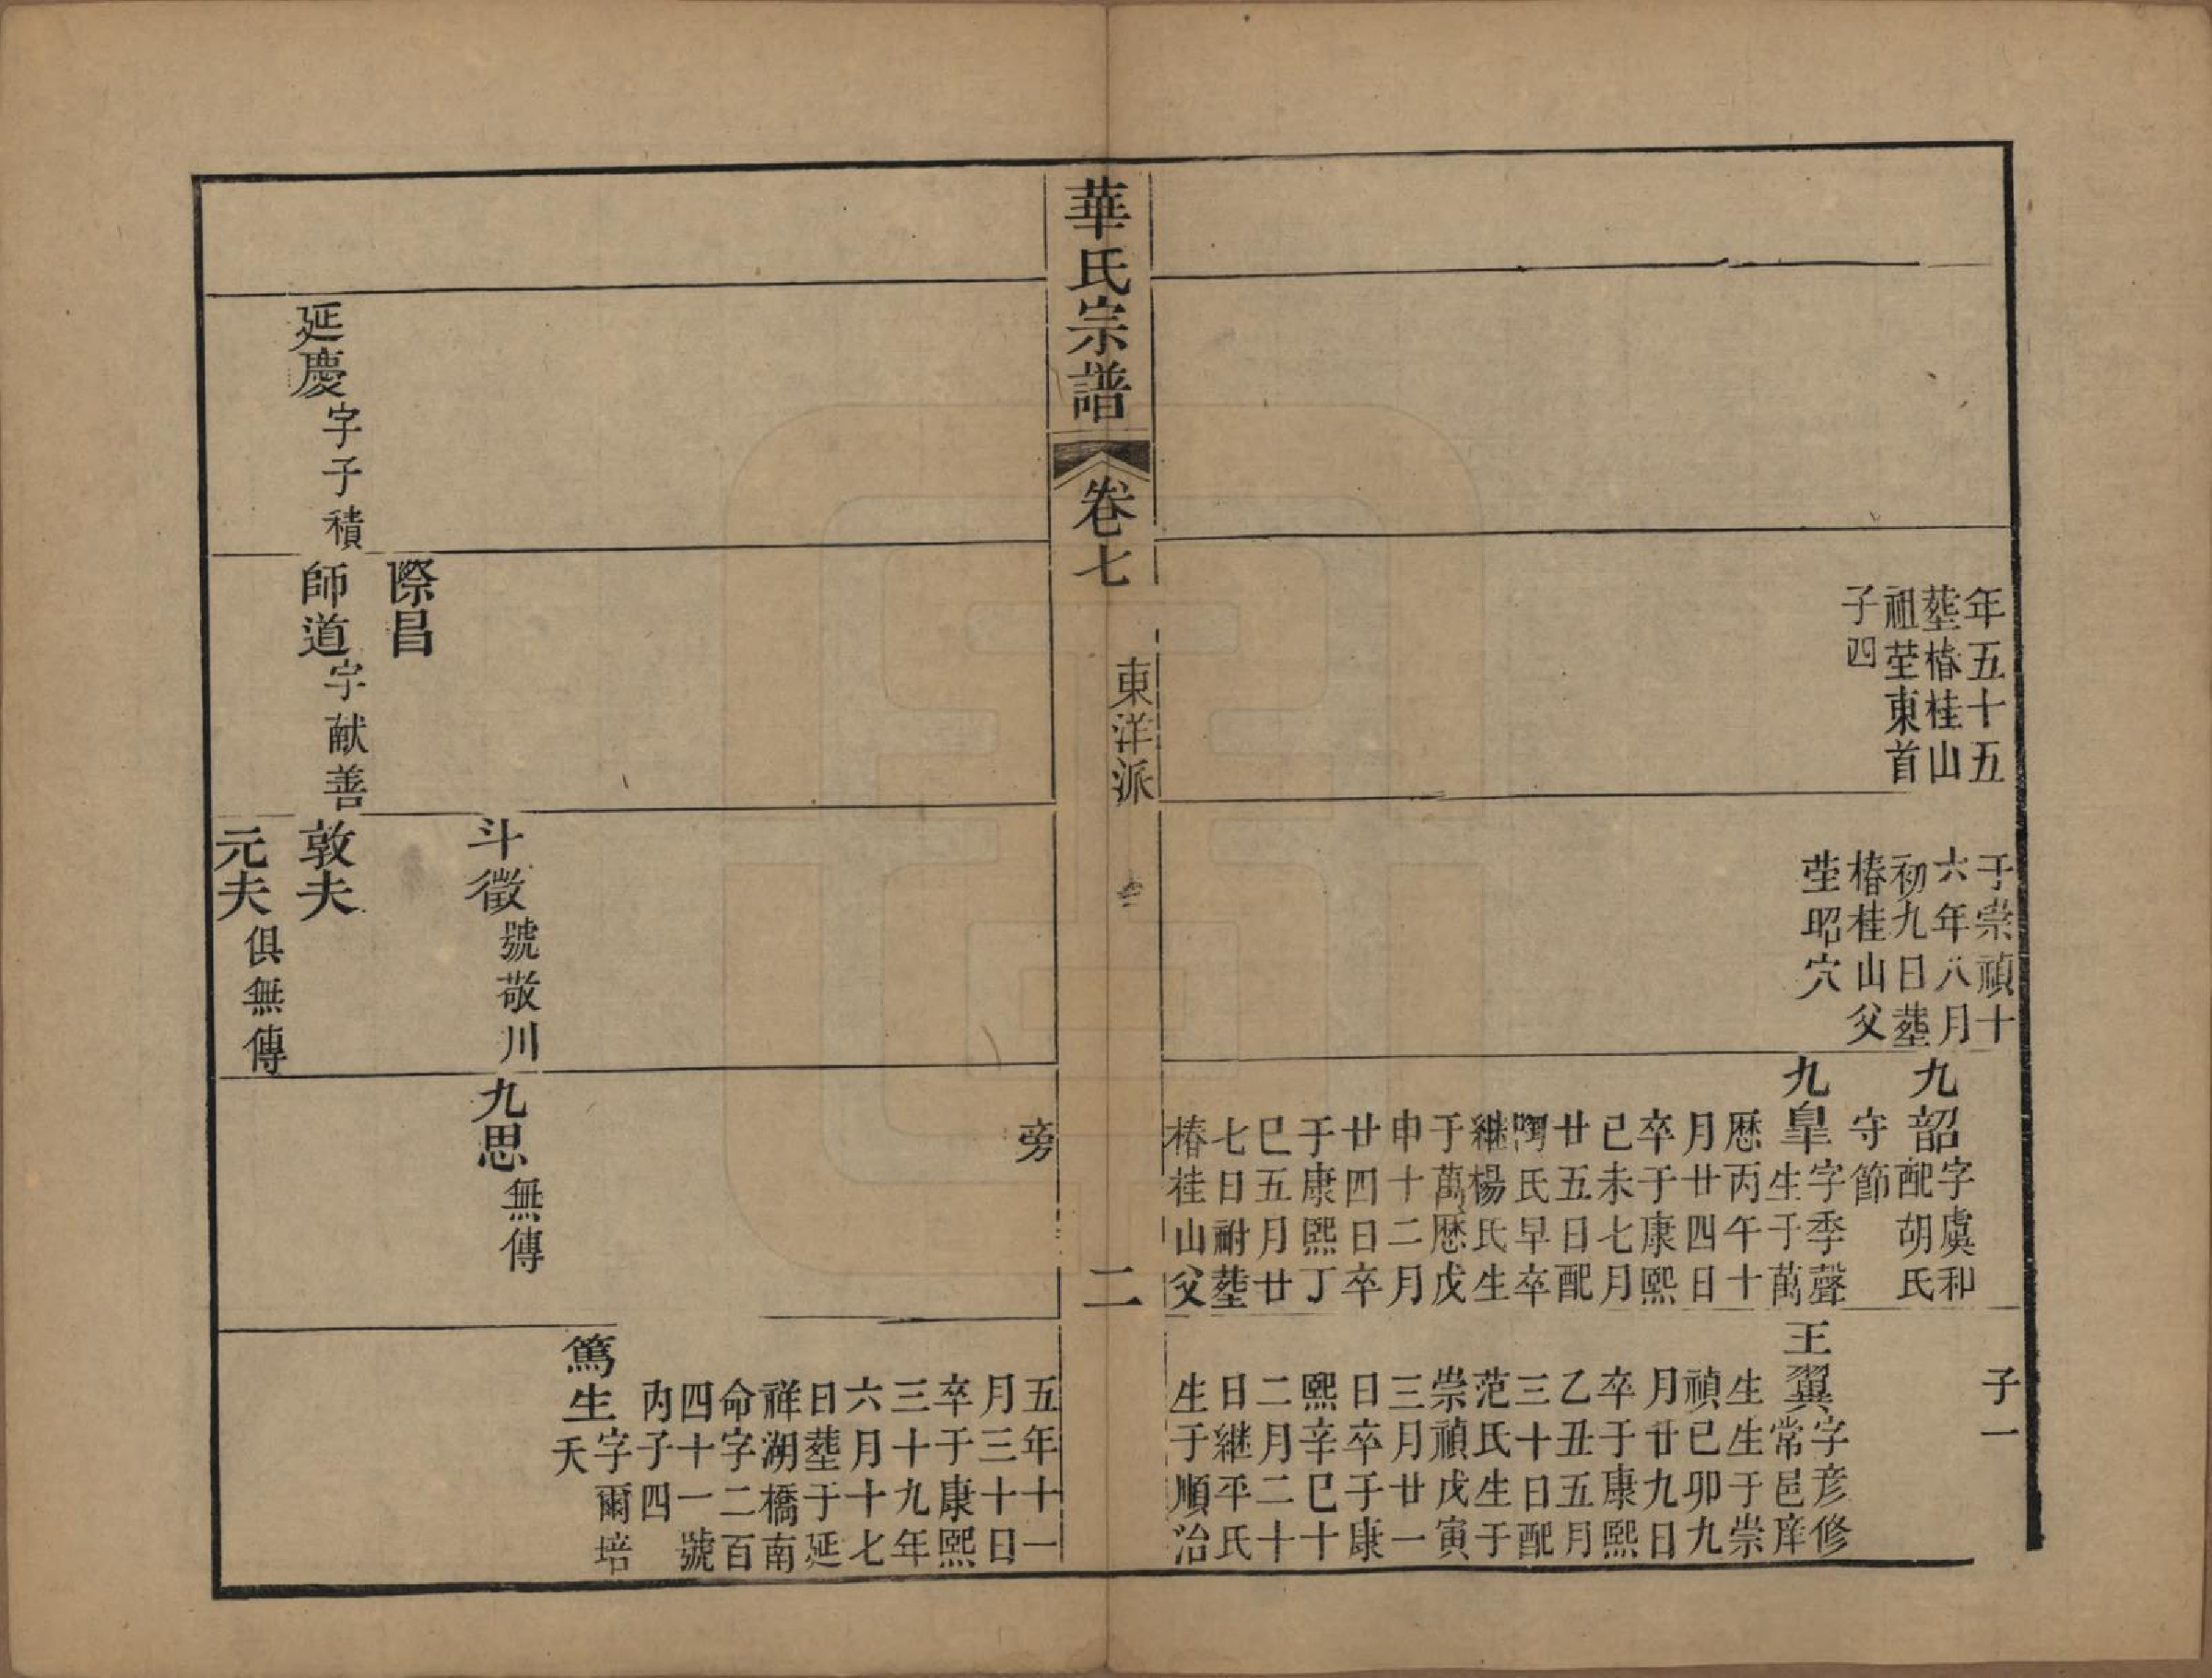 年五十五
塟椿桂山
祖塋東首
子四
于崇禎十
六年八月
初九日塟
椿桂山父
塋昭穴
九韶字虞和
配胡氏
守節
九臯字季聲
生于萬
歷丙午十
月廿四日
卒于康熙
己未七月
廿五日配
陶氏早卒
継楊氏生
于萬歷戊
申十二月
廿四日卒
于康熙丁
巳五月廿
七日祔塟
椿桂山父
子一
王翼字彦修
常邑庠
生生于崇
禎己卯九
月廿九日
卒于康熙
乙丑五月
三十日配
范氏生于
崇禎戊寅
三月廿一
日卒于康
熙辛巳十
二月二十
日継平氏
生于順治
華氏宗譜
卷七
東洋派
二
旁
五年十一
月三十日
卒于康熙
三十九年
六月十七
日塟于延
祥湖橋南
命字二百
四十一號
内子四
篤生字爾培
夭
延慶字子積
際昌
師道字献善
斗徵號敬川
敦夫
元夫俱無傳
九思無傳